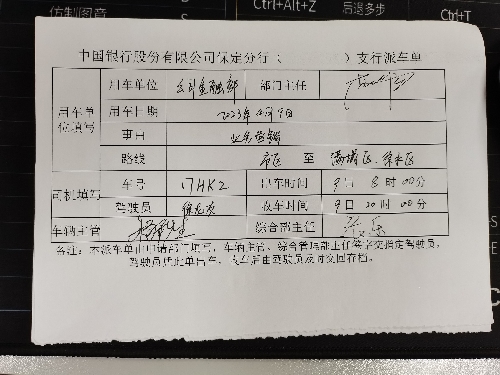 仿制图章
Ctrl+Alt+Z
后退多步
Ctrl+T
中国银行股份有限公司保定分行（ ）支行派车单
用车单位填写 用车单位 公司金融部 部门主任
用车日期 2023年 月9日
事由 业务营销
路线 市区 至 满城区、徐水区
司机填写 车号 17HK2 出车时间 9日8时00分
驾驶员 收车时间 9日20时00分
车辆主管 综合部主任
备注：本派车单由申请部门填写，车辆主管、综合管理部主任签字交指定驾驶员，
驾驶员凭此单出车，收车后由驾驶员及时交回存档。